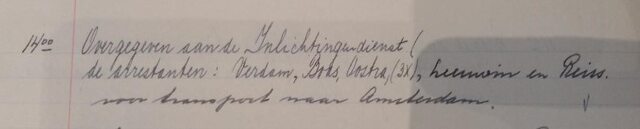 14⁰⁰ Overgegeven aan de Inlichtingendienst (
de arrestanten: Verdam, Boas, Oostra, (3x), Leeuwin en Reiss.
voor transport naar Amsterdam. V